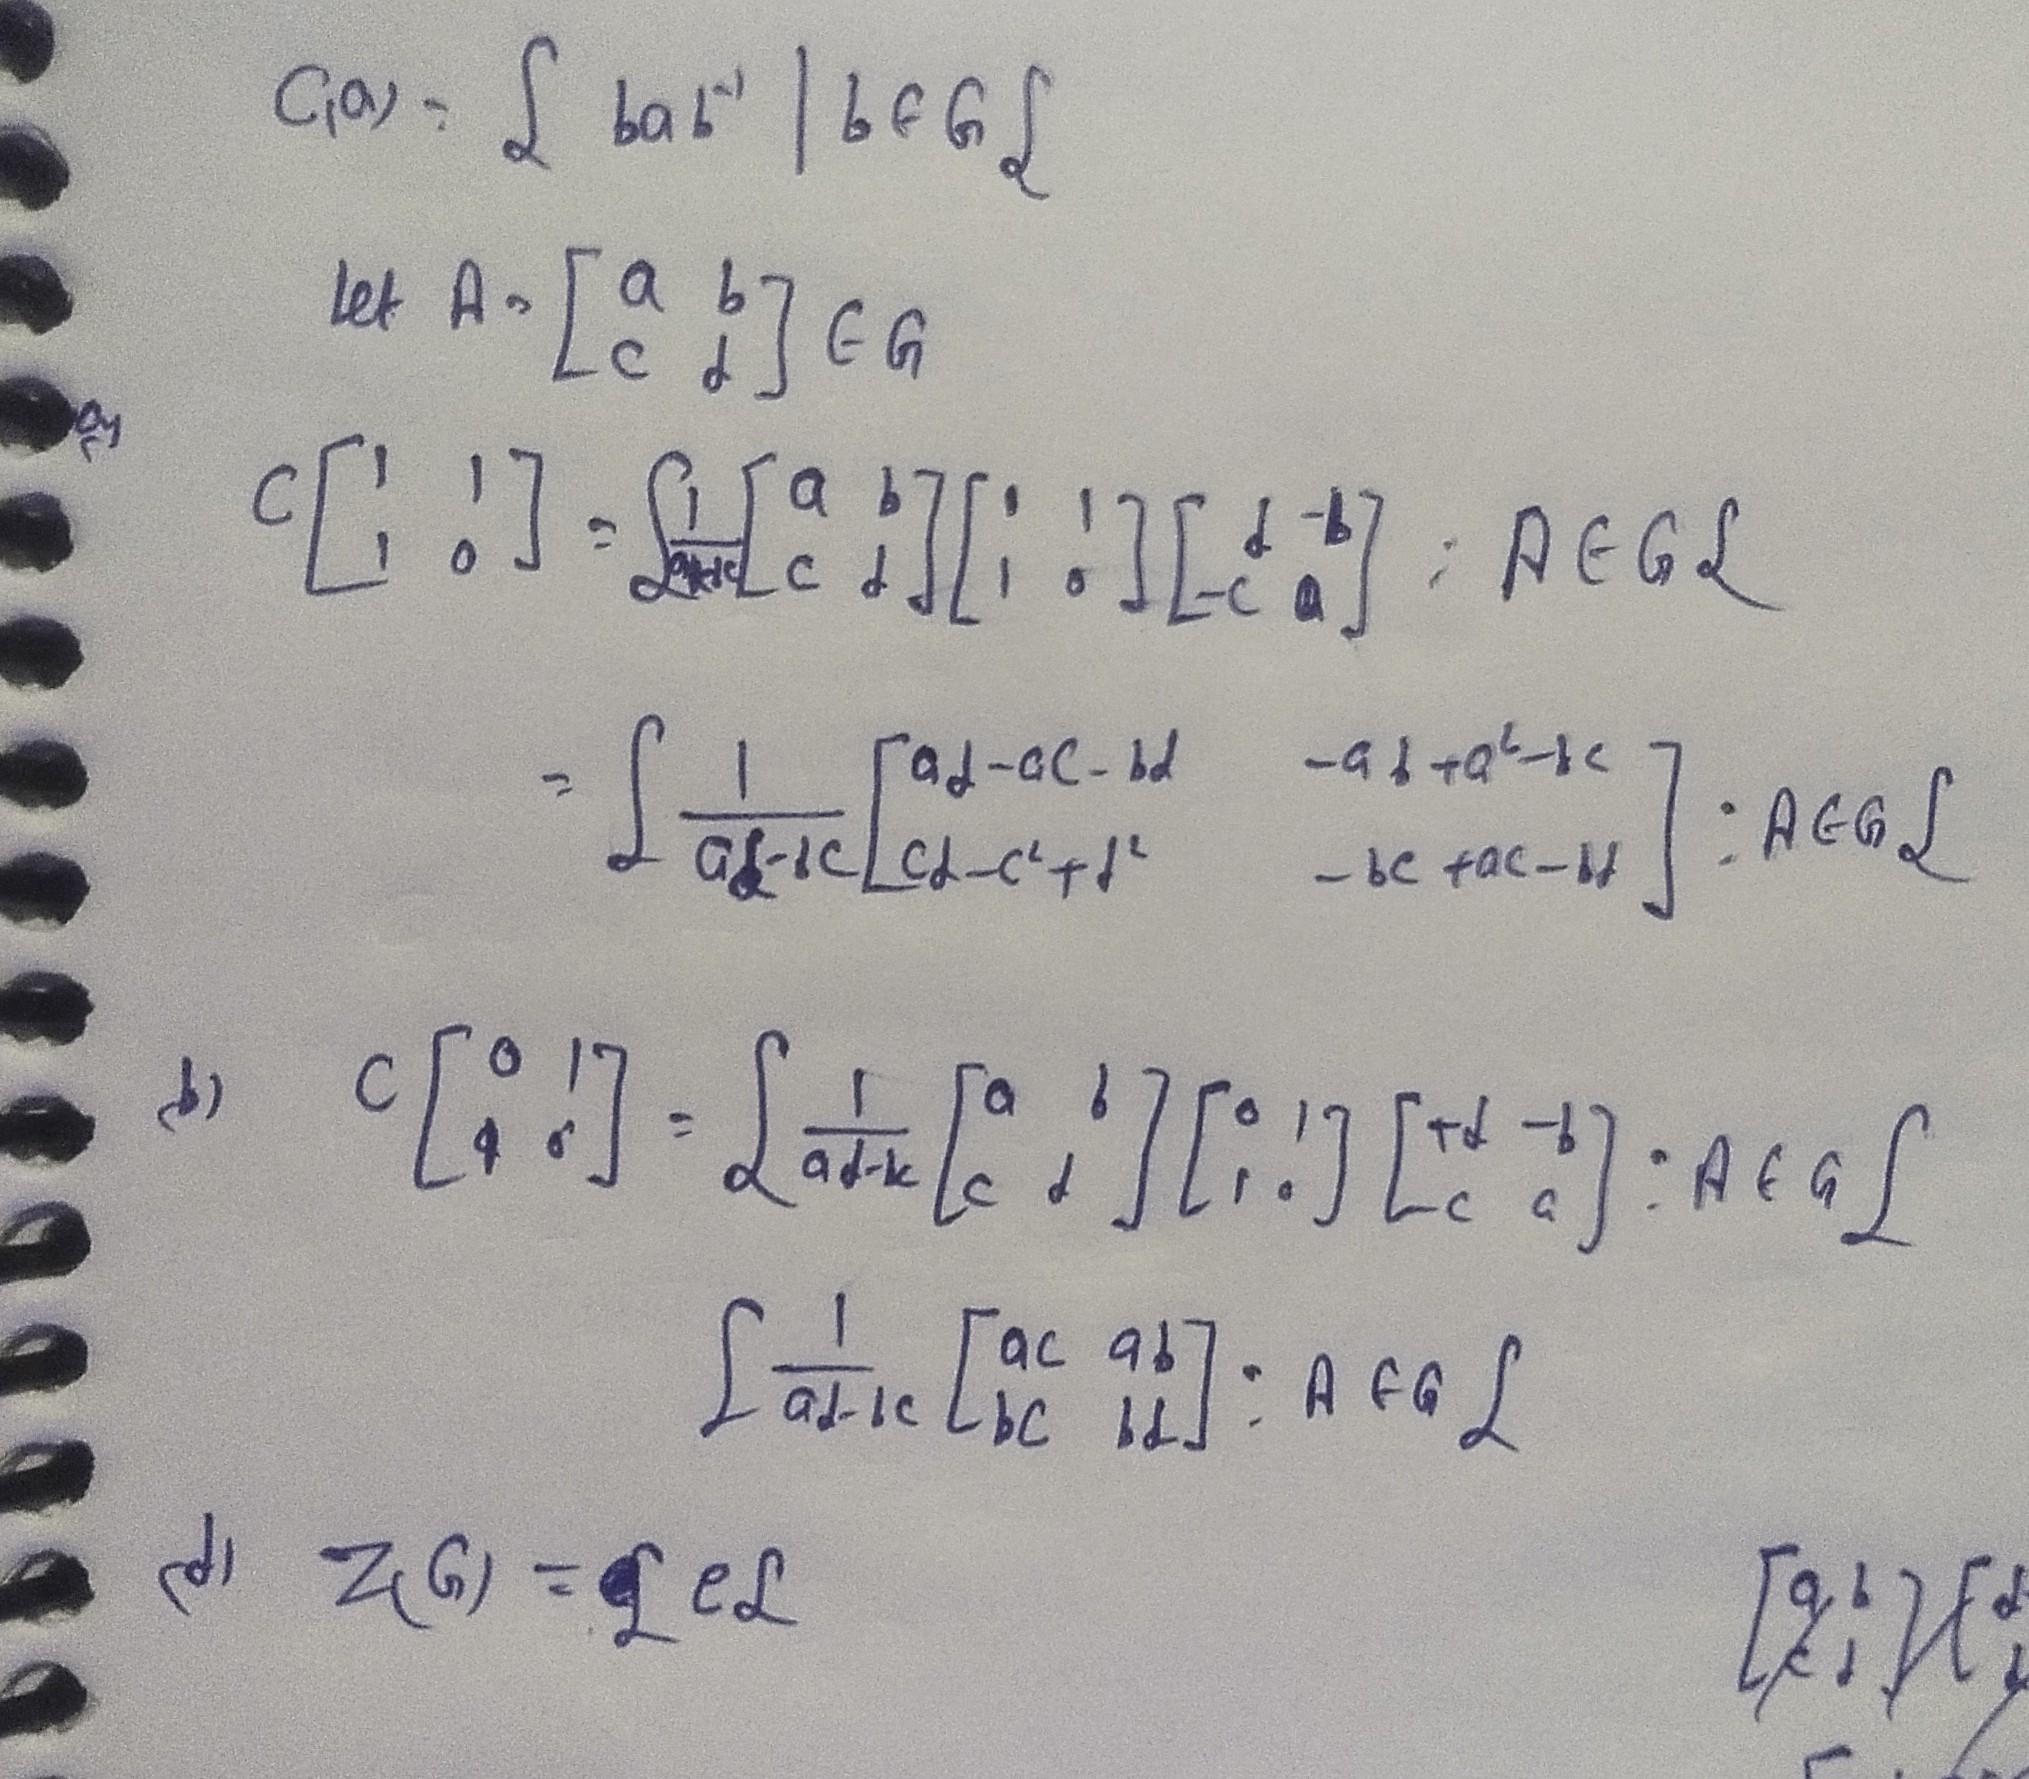 C(a) = { bab⁻¹ | b ∈ G }
Let A = [ a b ; c d ] ∈ G
(a) C[ 1 1 ; 1 0 ] = { 1/(ad-bc) [ a b ; c d ] [ 1 1 ; 1 0 ] [ d -b ; -c a ] : A ∈ G }
= { 1/(ad-bc) [ ad-ac-bd -ab+a²-bc ; cd-c²+d² -bc+ac-bd ] : A ∈ G }
(b) C[ 0 1 ; 1 0 ] = { 1/(ad-bc) [ a b ; c d ] [ 0 1 ; 1 0 ] [ +d -b ; -c a ] : A ∈ G }
{ 1/(ad-bc) [ ac ab ; bc bd ] : A ∈ G }
(d) Z(G) = { e }
[ a b ; c d ]